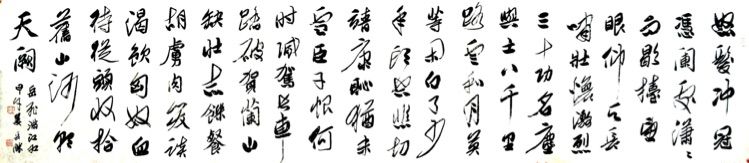 怒髮冲冠
憑闌處瀟瀟
雨歇擡望
眼仰天長
嘯壯懷激烈
三十功名塵
與土八千里
路雲和月莫
等閑白了少
年頭悲切
靖康恥猶未
雪臣子恨何
時滅駕長車
踏破賀蘭山
缺壯志饑餐
胡虜肉笑談
渴飲匈奴血
待從頭收拾
舊山河朝
天闕
岳飛滿江紅
甲午